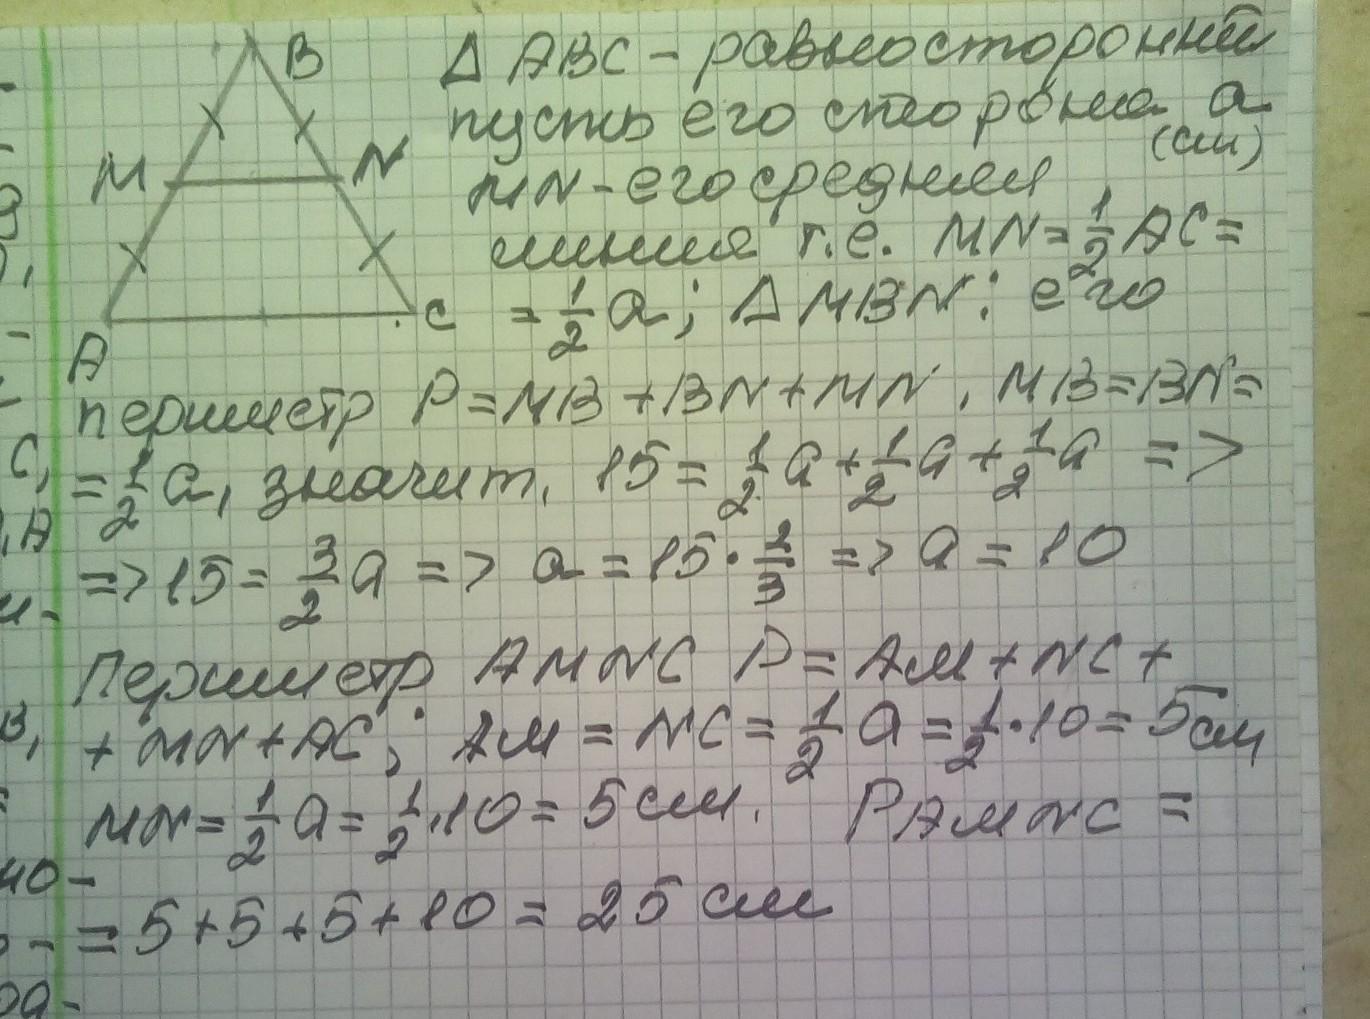 B
△ ABC - равносторонний
пусть его сторона a
(см)
M
N
MN - его средняя
линия т.е. MN = 1/2 AC =
A
C
= 1/2 a; △ MBN: его
периметр P = MB + BN + MN, MB = BN =
= 1/2 a, значит, 15 = 1/2 a + 1/2 a + 1/2 a =>
=> 15 = 3/2 a => a = 15 · 2/3 => a = 10
Периметр AMNC P = AM + NC +
+ MN + AC; AM = NC = 1/2 a = 1/2 · 10 = 5 см
MN = 1/2 a = 1/2 · 10 = 5 см. PAMNC =
= 5 + 5 + 5 + 10 = 25 см